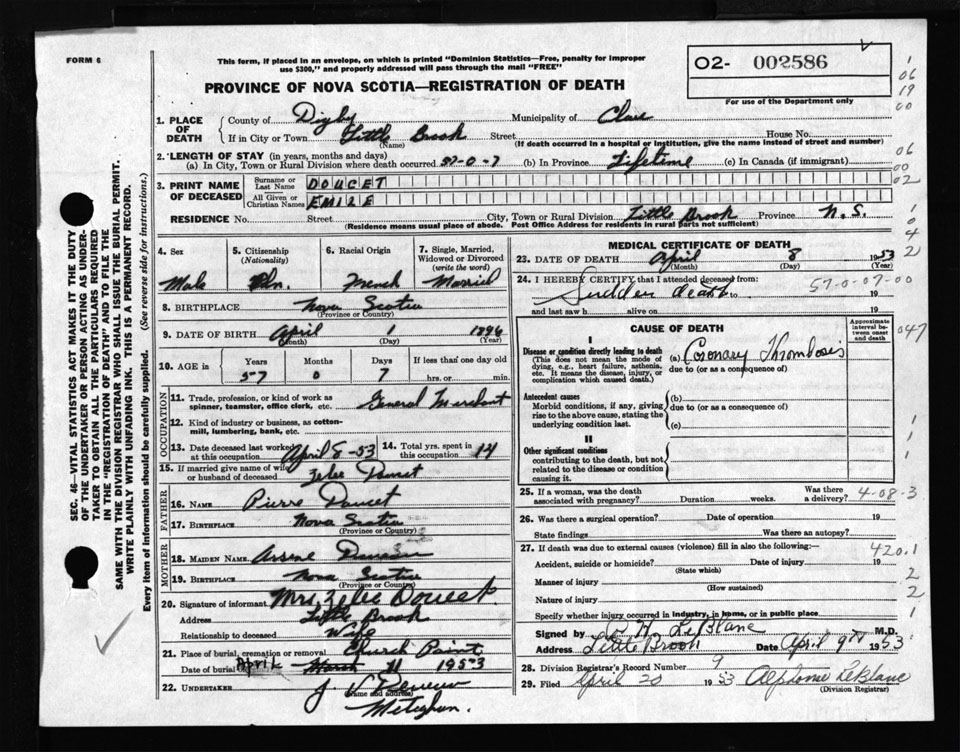 FORM 6
This form, if placed in an envelope, on which is printed "Dominion Statistics—Free, penalty for improper
use $300," and properly addressed will pass through the mail "FREE"
O2- 002586
For use of the Department only
PROVINCE OF NOVA SCOTIA—REGISTRATION OF DEATH
1. PLACE OF DEATH
County of Digby Municipality of Clare
If in City or Town Little Brook Street House No.
(Name) (If death occurred in a hospital or institution, give the name instead of street and number)
2. LENGTH OF STAY (in years, months and days)
(a) In City, Town or Rural Division where death occurred 57-0-7 (b) In Province Lifetime (c) In Canada (if immigrant)
3. PRINT NAME OF DECEASED
Surname or Last Name DOUCET
All Given or Christian Names EMILE
RESIDENCE No. Street City, Town or Rural Division Little Brook Province N.S.
(Residence means usual place of abode. Post Office Address for residents in rural parts not sufficient)
4. Sex
Male
5. Citizenship
(Nationality)
6. Racial Origin
French
7. Single, Married, Widowed or Divorced
(write the word)
Married
8. BIRTHPLACE Nova Scotia
(Province or Country)
9. DATE OF BIRTH April 1 1896
(Month) (Day)
10. AGE in
Years Months Days If less than one day old
57 0 7 hrs. or min.
OCCUPATION
11. Trade, profession, or kind of work as
spinner, teamster, office clerk, etc. General Merchant
12. Kind of industry or business, as cotton-
mill, lumbering, bank, etc.
13. Date deceased last worked
at this occupation April 8-53
14. Total yrs. spent in
this occupation 14
15. If married give name of wife
or husband of deceased Zelee Doucet
FATHER
16. NAME Pierre Doucet
17. BIRTHPLACE Nova Scotia
(Province or Country)
MOTHER
18. MAIDEN NAME Arsene
19. BIRTHPLACE Nova Scotia
(Province or Country)
20. Signature of informant Mrs. Zelee Doucet
Address Little Brook
Relationship to deceased Wife
21. Place of burial, cremation or removal Church Point
Date of burial April March 11 1953
22. UNDERTAKER J
(Name and address)
Meteghan.
MEDICAL CERTIFICATE OF DEATH
23. DATE OF DEATH April 8 1953
(Month) (Day) (Year)
24. I HEREBY CERTIFY that I attended deceased from:
Sudden death to 19
and last saw h alive on 19
57-0-07-00
CAUSE OF DEATH
Approximate interval between onset and death
I
Disease or condition directly leading to death
(This does not mean the mode of
dying, e.g., heart failure, asthenia,
etc. It means the disease, injury, or
complication which caused death.)
(a) Coronary Thrombosis
due to (or as a consequence of)
Antecedent causes
Morbid conditions, if any, giving
rise to the above cause, stating the
underlying condition last.
(b)
due to (or as a consequence of)
(c)
II
Other significant conditions
contributing to the death, but not
related to the disease or condition
causing it.
25. If a woman, was the death
associated with pregnancy? Duration weeks. Was there a delivery?
4-08-3
26. Was there a surgical operation? Date of operation 19
State findings Was there an autopsy?
27. If death was due to external causes (violence) fill in also the following:—
Accident, suicide or homicide? Date of injury 19
(State which)
420.1
Manner of injury
(How sustained)
Nature of injury
Specify whether injury occurred in industry, in home, or in public place
Signed by LeBlanc M.D.
Address Little Brook Date April 9th 1953
28. Division Registrar's Record Number 9
29. Filed April 20 1953 Alphonse LeBlanc
(Division Registrar)
06
19
00
06
00
02
1
0
4
2
047
1
1
1
2
2
1
SEC. 46—VITAL STATISTICS ACT MAKES IT THE DUTY
OF THE UNDERTAKER OR PERSON ACTING AS UNDER-
TAKER TO OBTAIN ALL THE PARTICULARS REQUIRED
IN THE "REGISTRATION OF DEATH" AND TO FILE THE
SAME WITH THE DIVISION REGISTRAR WHO SHALL ISSUE THE BURIAL PERMIT.
WRITE PLAINLY WITH UNFADING INK. THIS IS A PERMANENT RECORD.
Every item of information should be carefully supplied. (See reverse side for instructions.)